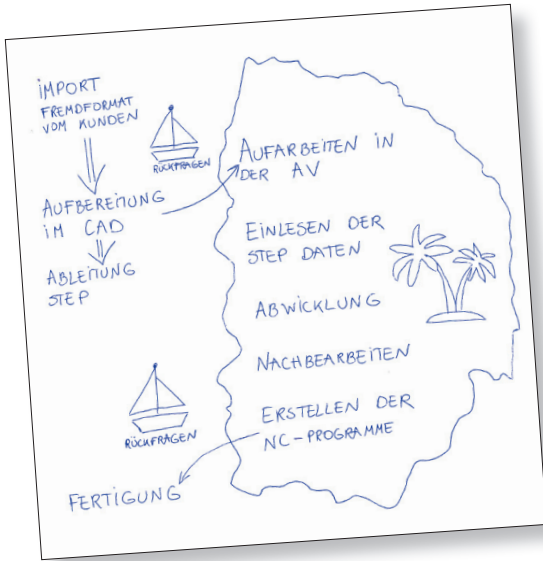 IMPORT
FREMDFORMAT
VOM KUNDEN
RÜCKFRAGEN
AUFBEREITUNG
IM CAD
ABLEITUNG
STEP
AUFARBEITEN IN
DER AV
EINLESEN DER
STEP DATEN
ABWICKLUNG
NACHBEARBEITEN
ERSTELLEN DER
NC-PROGRAMME
RÜCKFRAGEN
FERTIGUNG